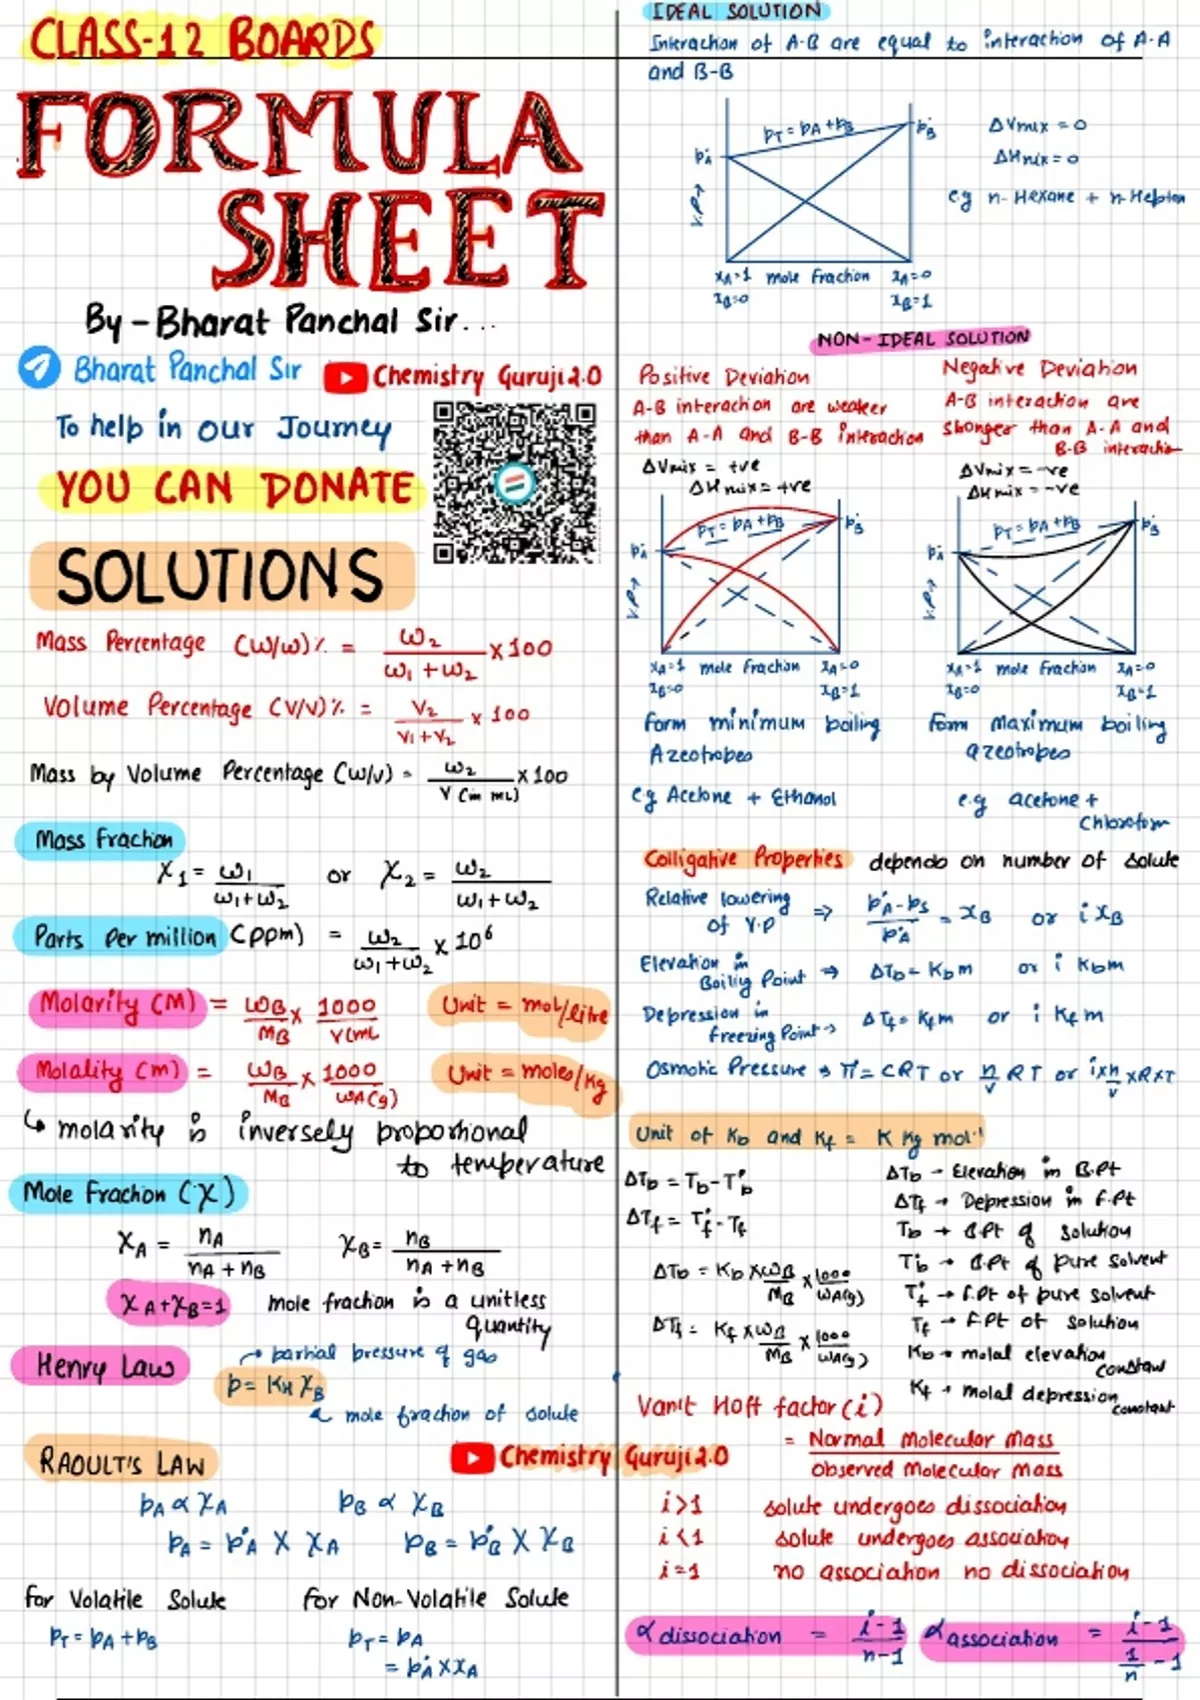 CLASS-12 BOARDS
FORMULA
SHEET
By - Bharat Panchal Sir...
Bharat Panchal Sir
Chemistry Guruji 2.0
To help in our Journey
YOU CAN DONATE
SOLUTIONS
Mass Percentage (w/w)% = w₂ / (w₁ + w₂) × 100
Volume Percentage (V/V)% = V₂ / (V₁ + V₂) × 100
Mass by Volume Percentage (w/v) = w₂ / V (in mL) × 100
Mass Fraction
X₁ = w₁ / (w₁ + w₂) or X₂ = w₂ / (w₁ + w₂)
Parts Per million (ppm) = w₂ / (w₁ + w₂) × 10⁶
Molarity (M) = wB / MB × 1000 / V(mL Unit = mol/litre
Molality (m) = wB / MB × 1000 / wA(g) Unit = moles/Kg
↳ molarity is inversely proportional
to temperature
Mole Fraction (X)
XA = nA / (nA + nB) XB = nB / (nA + nB)
XA + XB = 1 mole fraction is a unitless
quantity
Henry Law
→ partial pressure of gas
p = KH XB
mole fraction of solute
RAOULT'S LAW
Chemistry Guruji 2.0
pA ∝ XA pB ∝ XB
pA = p°A × XA pB = p°B × XB
for Volatile Solute for Non-Volatile Solute
pT = pA + pB pT = pA
= p°A × xA
IDEAL SOLUTION
Interaction of A-B are equal to interaction of A-A
and B-B
pT = pA + pB
p°A
p°B
V.P →
xA=1 mole fraction xA=0
xB=0 xB=1
ΔVmix = 0
ΔHmix = 0
e.g n-Hexane + n-Heptan
NON-IDEAL SOLUTION
Positive Deviation
A-B interaction are weaker
than A-A and B-B interaction
ΔVmix = +ve
ΔHmix = +ve
pT = pA + pB
p°A
p°B
V.P →
xA=1 mole fraction xA=0
xB=0 xB=1
form minimum boiling
Azeotropes
e.g Acetone + Ethanol
Negative Deviation
A-B interaction are
stronger than A-A and
B-B interaction
ΔVmix = -ve
ΔHmix = -ve
pT = pA + pB
p°A
p°B
V.P →
xA=1 mole fraction xA=0
xB=0 xB=1
form maximum boiling
azeotropes
e.g acetone +
Chloroform
Colligative Properties depends on number of solute
Relative lowering
of V.P ⇒ (p°A - ps) / p°A = xB or i xB
Elevation in
Boiling Point ⇒ ΔTb = Kbm or i Kbm
Depression in
freezing Point → ΔTf = Kfm or i Kfm
Osmotic Pressure → π = CRT or n/v RT or i×n/v ×R×T
Unit of Kb and Kf = K Kg mol⁻¹
ΔTb = Tb - T°b
ΔTf = T°f - Tf
ΔTb = Kb × wB / MB × 1000 / wA(g)
ΔTf = Kf × wB / MB × 1000 / wA(g)
ΔTb → Elevation in B.Pt
ΔTf → Depression in F.Pt
Tb → B.Pt of solution
T°b → B.Pt of pure solvent
T°f → F.Pt of pure solvent
Tf → F.Pt of solution
Kb → molal elevation constant
Kf → molal depression constant
Vanit Hoff factor (i)
= Normal Molecular Mass / Observed Molecular Mass
i>1 solute undergoes dissociation
i<1 solute undergoes association
i=1 no association no dissociation
α dissociation = (i-1) / (n-1)
α association = (i-1) / (1/n - 1)